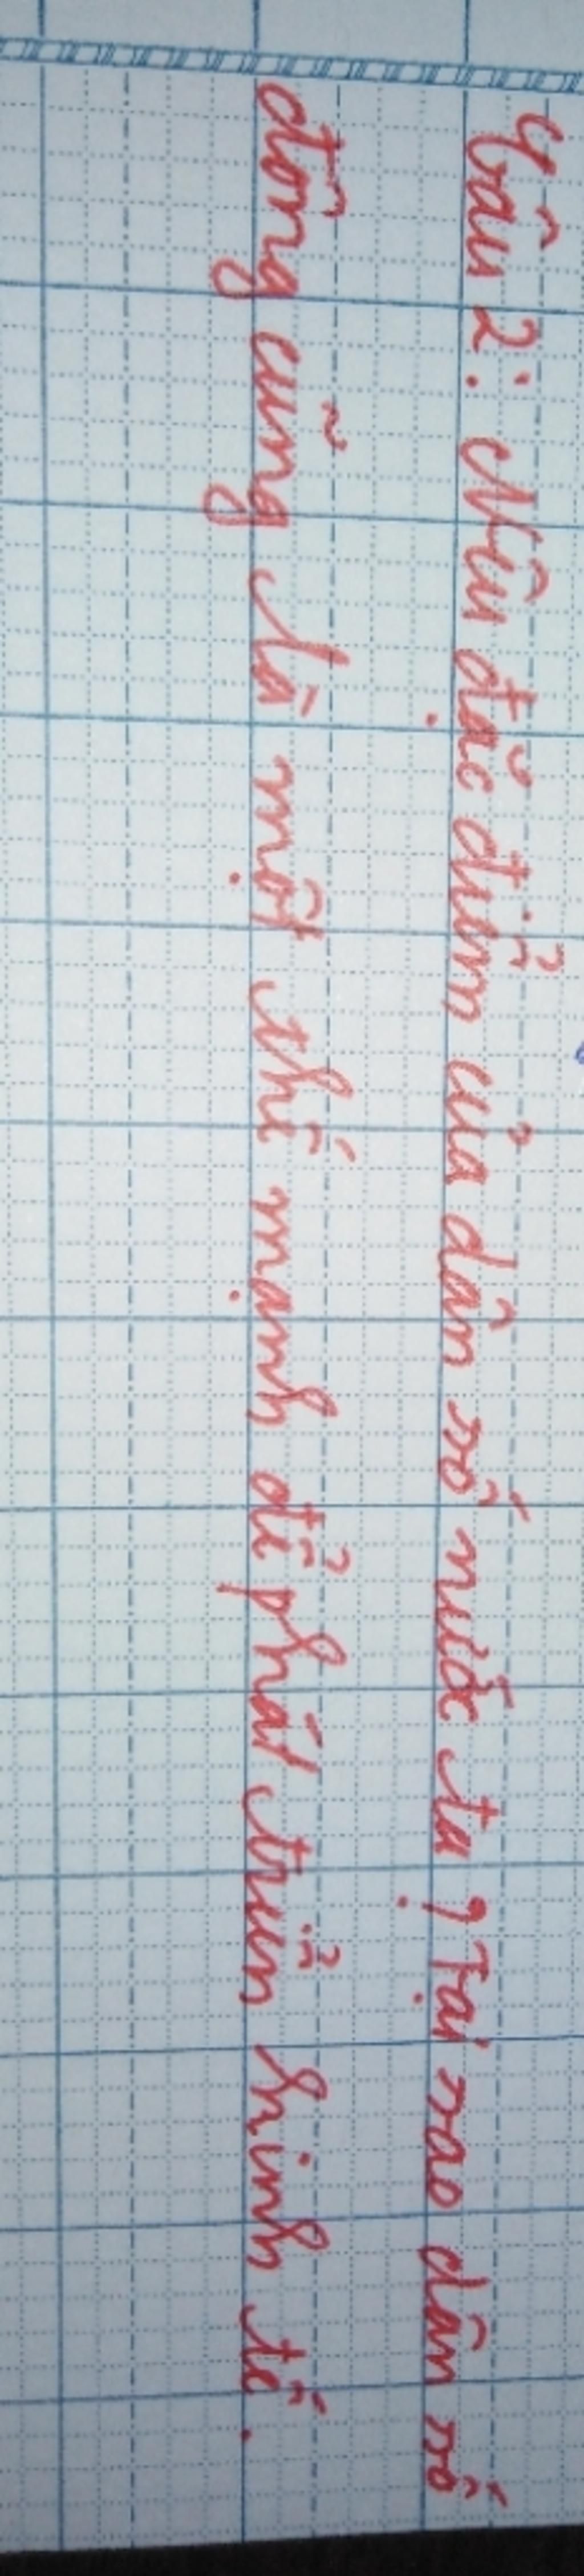 Câu 2: Nêu đặc điểm của dân số nước ta? Tại sao dân số
đông cũng là một thế mạnh để phát triển kinh tế.